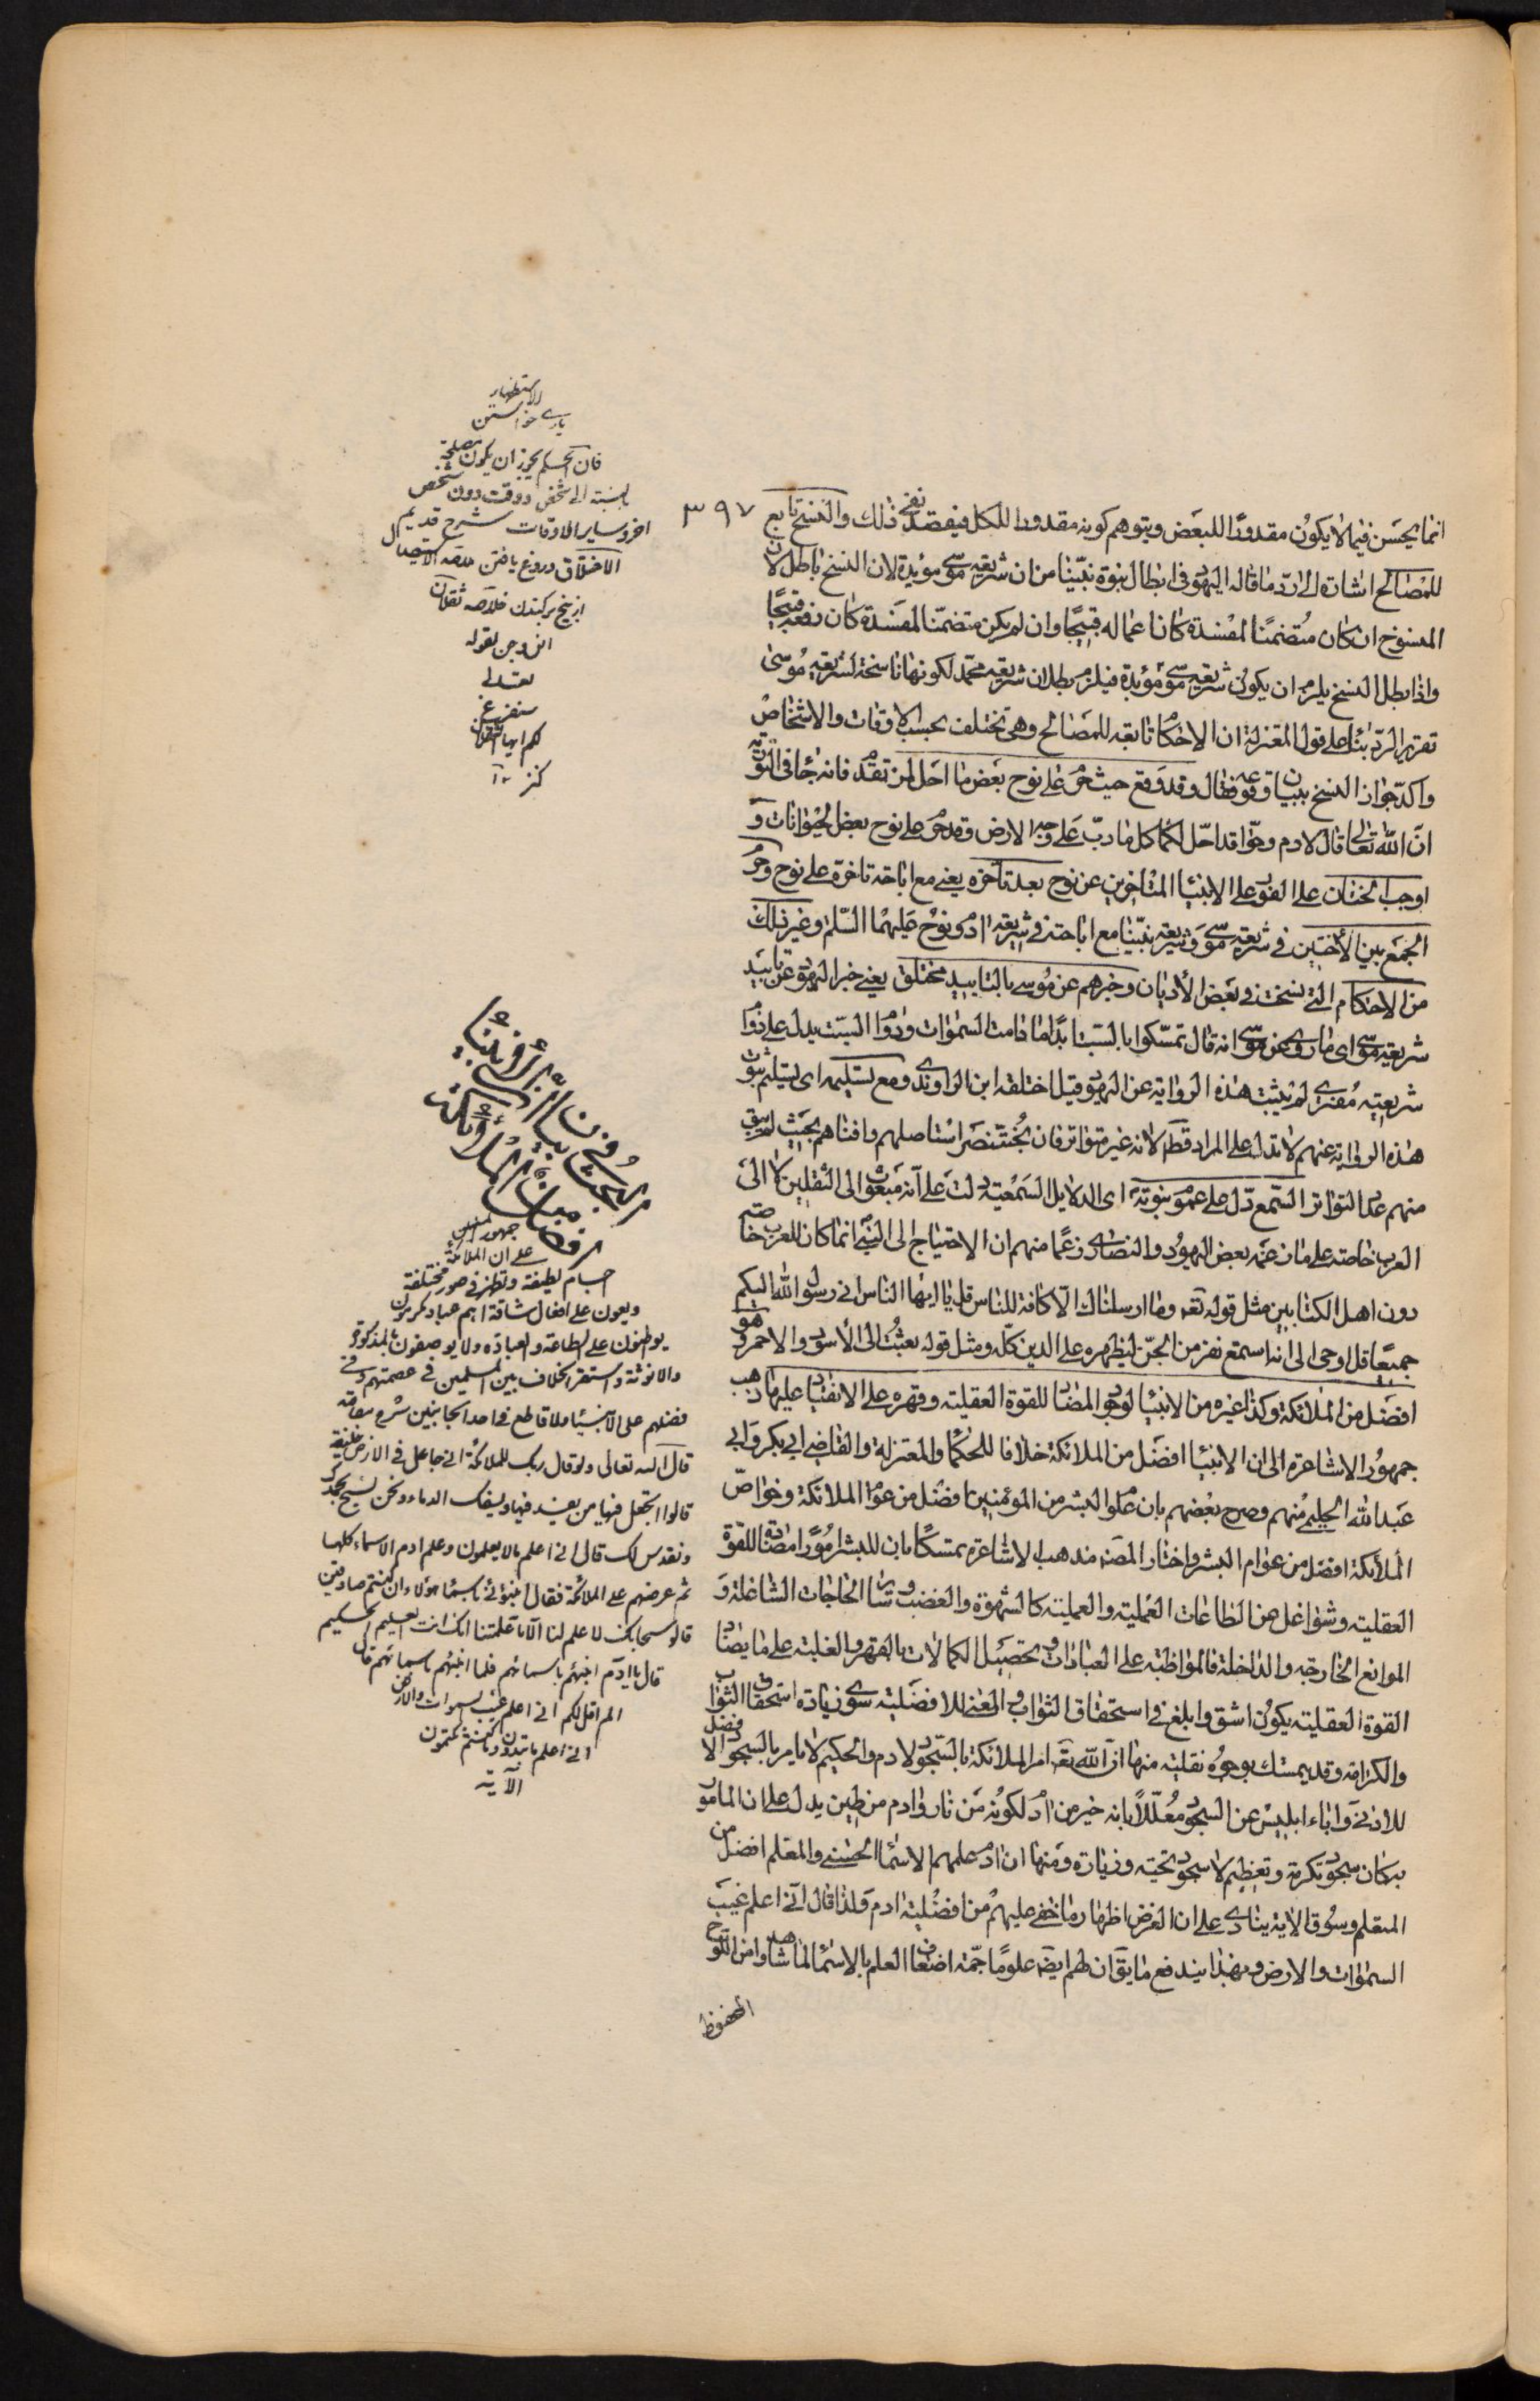 ٣٩٧
انما يحسن فيما لا يكون مقدورا للبعض ويتوهم كونه مقدورا للكل فيقصد نفى ذلك والنسخ تابع
للمصالح اشارة الى رد ما قاله اليهود فى ابطال نبوة نبينا من ان شريعة موسى مؤبدة لان النسخ باطل لان
المنسوخ ان كان متضمنا لمفسدة كان اعماله قبيحا وان لم يكن متضمنا لمفسدة كان رفعه قبيحا
واذا بطل النسخ يلزم ان يكون شريعة موسى مؤبدة فيلزم بطلان شريعة محمد لكونها ناسخة لشريعة موسى
تقرير الرد بناء على قول المعتزلة ان الاحكام تابعة للمصالح وهى تختلف بحسب الاوقات والاشخاص
واكد جواز النسخ ببيان وقوعه فقال وقد وقع حيث حرم على نوح بعض ما احل لمن تقدم فانه جاء فى التورية
ان الله تعالى قال لادم وحوا قد احل لكما كل ما دب على وجه الارض وقد حرم على نوح بعض الحيوانات و
اوجب الختان على الفور على الانبياء المتاخرين عن نوح بعد تاخره يعنى مع اباحة تاخره على نوح وحرم
الجمع بين الاختين فى شريعة موسى وشريعة نبينا مع اباحته فى شريعة ادم ونوح عليهما السلم وغير ذلك
من الاحكام التى نسخت فى بعض الاديان وخبرهم عن موسى بالتابيد مختلق يعنى خبر اليهود عن تابيد
شريعة موسى اى ما روى عن موسى انه قال تمسكوا بالسبت ابدا ما دامت السموات ودوام السبت يدل على دوام
شريعته مفترى لم يثبت هذه الرواية عن اليهود قيل اختلقه ابن الراوندى ومع تسليمه اى تسليم ثبوت
هذه الرواية عنهم لا تدل على المراد قطعا لانه غير متواتر فان بختنصر استاصلهم وافناهم بحيث لم يبق
منهم عدد التواتر السمع دل على عموم نبوته اى الدلايل السمعية دلت على انه مبعوث الى الثقلين لا الى
العرب خاصة على ما زعمه بعض اليهود والنصارى زعما منهم ان الاحتياج الى النبى انما كان للعرب خاصة
دون اهل الكتابين مثل قوله تعه وما ارسلناك الا كافة للناس قل يا ايها الناس انى رسول الله اليكم
جميعا قل اوحى الى انه استمع نفر من الجن ليظهره على الدين كله ومثل قوله بعثت الى الاسود والاحمر وهو
افضل من الملائكة وكذا غيره من الانبياء لوجود المضاد للقوة العقلية وقهره على الانقياد عليها ذهب
جمهور الاشاعرة الى ان الانبياء افضل من الملائكة خلافا للحكماء والمعتزلة والقاضى ابى بكر وابى
عبد الله الحليمى منهم وصرح بعضهم بان عوام البشر من المؤمنين افضل من عوام الملائكة وخواص
الملائكة افضل من عوام البشر واختار المصنف مذهب الاشاعرة متمسكا بان للبشر امورا مضادة للقوة
العقلية وشواغل عن الطاعات العلمية والعملية كالشهوة والغضب وسائر الحاجات الشاغلة و
الموانع الخارجة والداخلة فالمواظبة على العبادات وتحصيل الكمالات بالقهر والغلبة على ما يضاد
القوة العقلية يكون اشق وابلغ فى استحقاق الثواب ولا معنى للافضلية سوى زيادة استحقاق الثواب
والكرامة وقد يتمسك بوجوه نقلية منها ان الله تعه امر الملائكة بالسجود لادم والحكيم لا يامر بالسجود الافضل
للادنى واباء ابليس عن السجود معللا بانه خير من ادم لكونه من نار وادم من طين يدل على ان المامور
به كان سجود تكرمة وتعظيم لا سجود تحية وزيارة ومنها ان ادم علمهم الاسماء الحسنى والمعلم افضل من
المتعلم وسوق الاية ينادى على ان الغرض اظهار ما خفى عليهم من افضلية ادم ولذا قال انى اعلم غيب
السموات والارض وبهذا يندفع ما يقال ان لهم ايضا علوما جمة اضعاف العلم بالاسماء لما شاهدوا من اللوح
المحفوظ
الاستظهار
يارى خواستن
فان الحكم يجوز ان يكون مصلحة
بالنسبة الى شخص ووقت دون شخص
اخر وساير الاوقات شرح قديم
الاختلاق دروغ بافتن الاستيصال
از بيخ بركندن خلاصه ثقلان
انس وجن لقوله
تعالى
سنفرغ
لكم ايها الثقلان
كنز
البحث فى ان الانبياء
افضل من الملائكة
جمهور المسلمين
على ان الملائكة
اجسام لطيفة وتظهر فى صور مختلفة
ويقوون على افعال شاقة هم عباد مكرمون
يواظبون على الطاعة والعبادة ولا يوصفون بالذكورة
والانوثة واستقر الخلاف بين المسلمين فى عصمتهم وفى
فضلهم على الانبياء ولا قاطع فى احد الجانبين شرح مقاصد
قال الله تعالى واذ قال ربك للملائكة انى جاعل فى الارض خليفة
قالوا اتجعل فيها من يفسد فيها ويسفك الدماء ونحن نسبح بحمدك
ونقدس لك قال انى اعلم ما لا تعلمون وعلم ادم الاسماء كلها
ثم عرضهم على الملائكة فقال انبئونى باسماء هؤلاء ان كنتم صادقين
قالوا سبحانك لا علم لنا الا ما علمتنا انك انت العليم الحكيم
قال يا ادم انبئهم باسمائهم فلما انبئهم باسمائهم قال
الم اقل لكم انى اعلم غيب السموات والارض
انى اعلم ما تبدون وما كنتم تكتمون
الآية